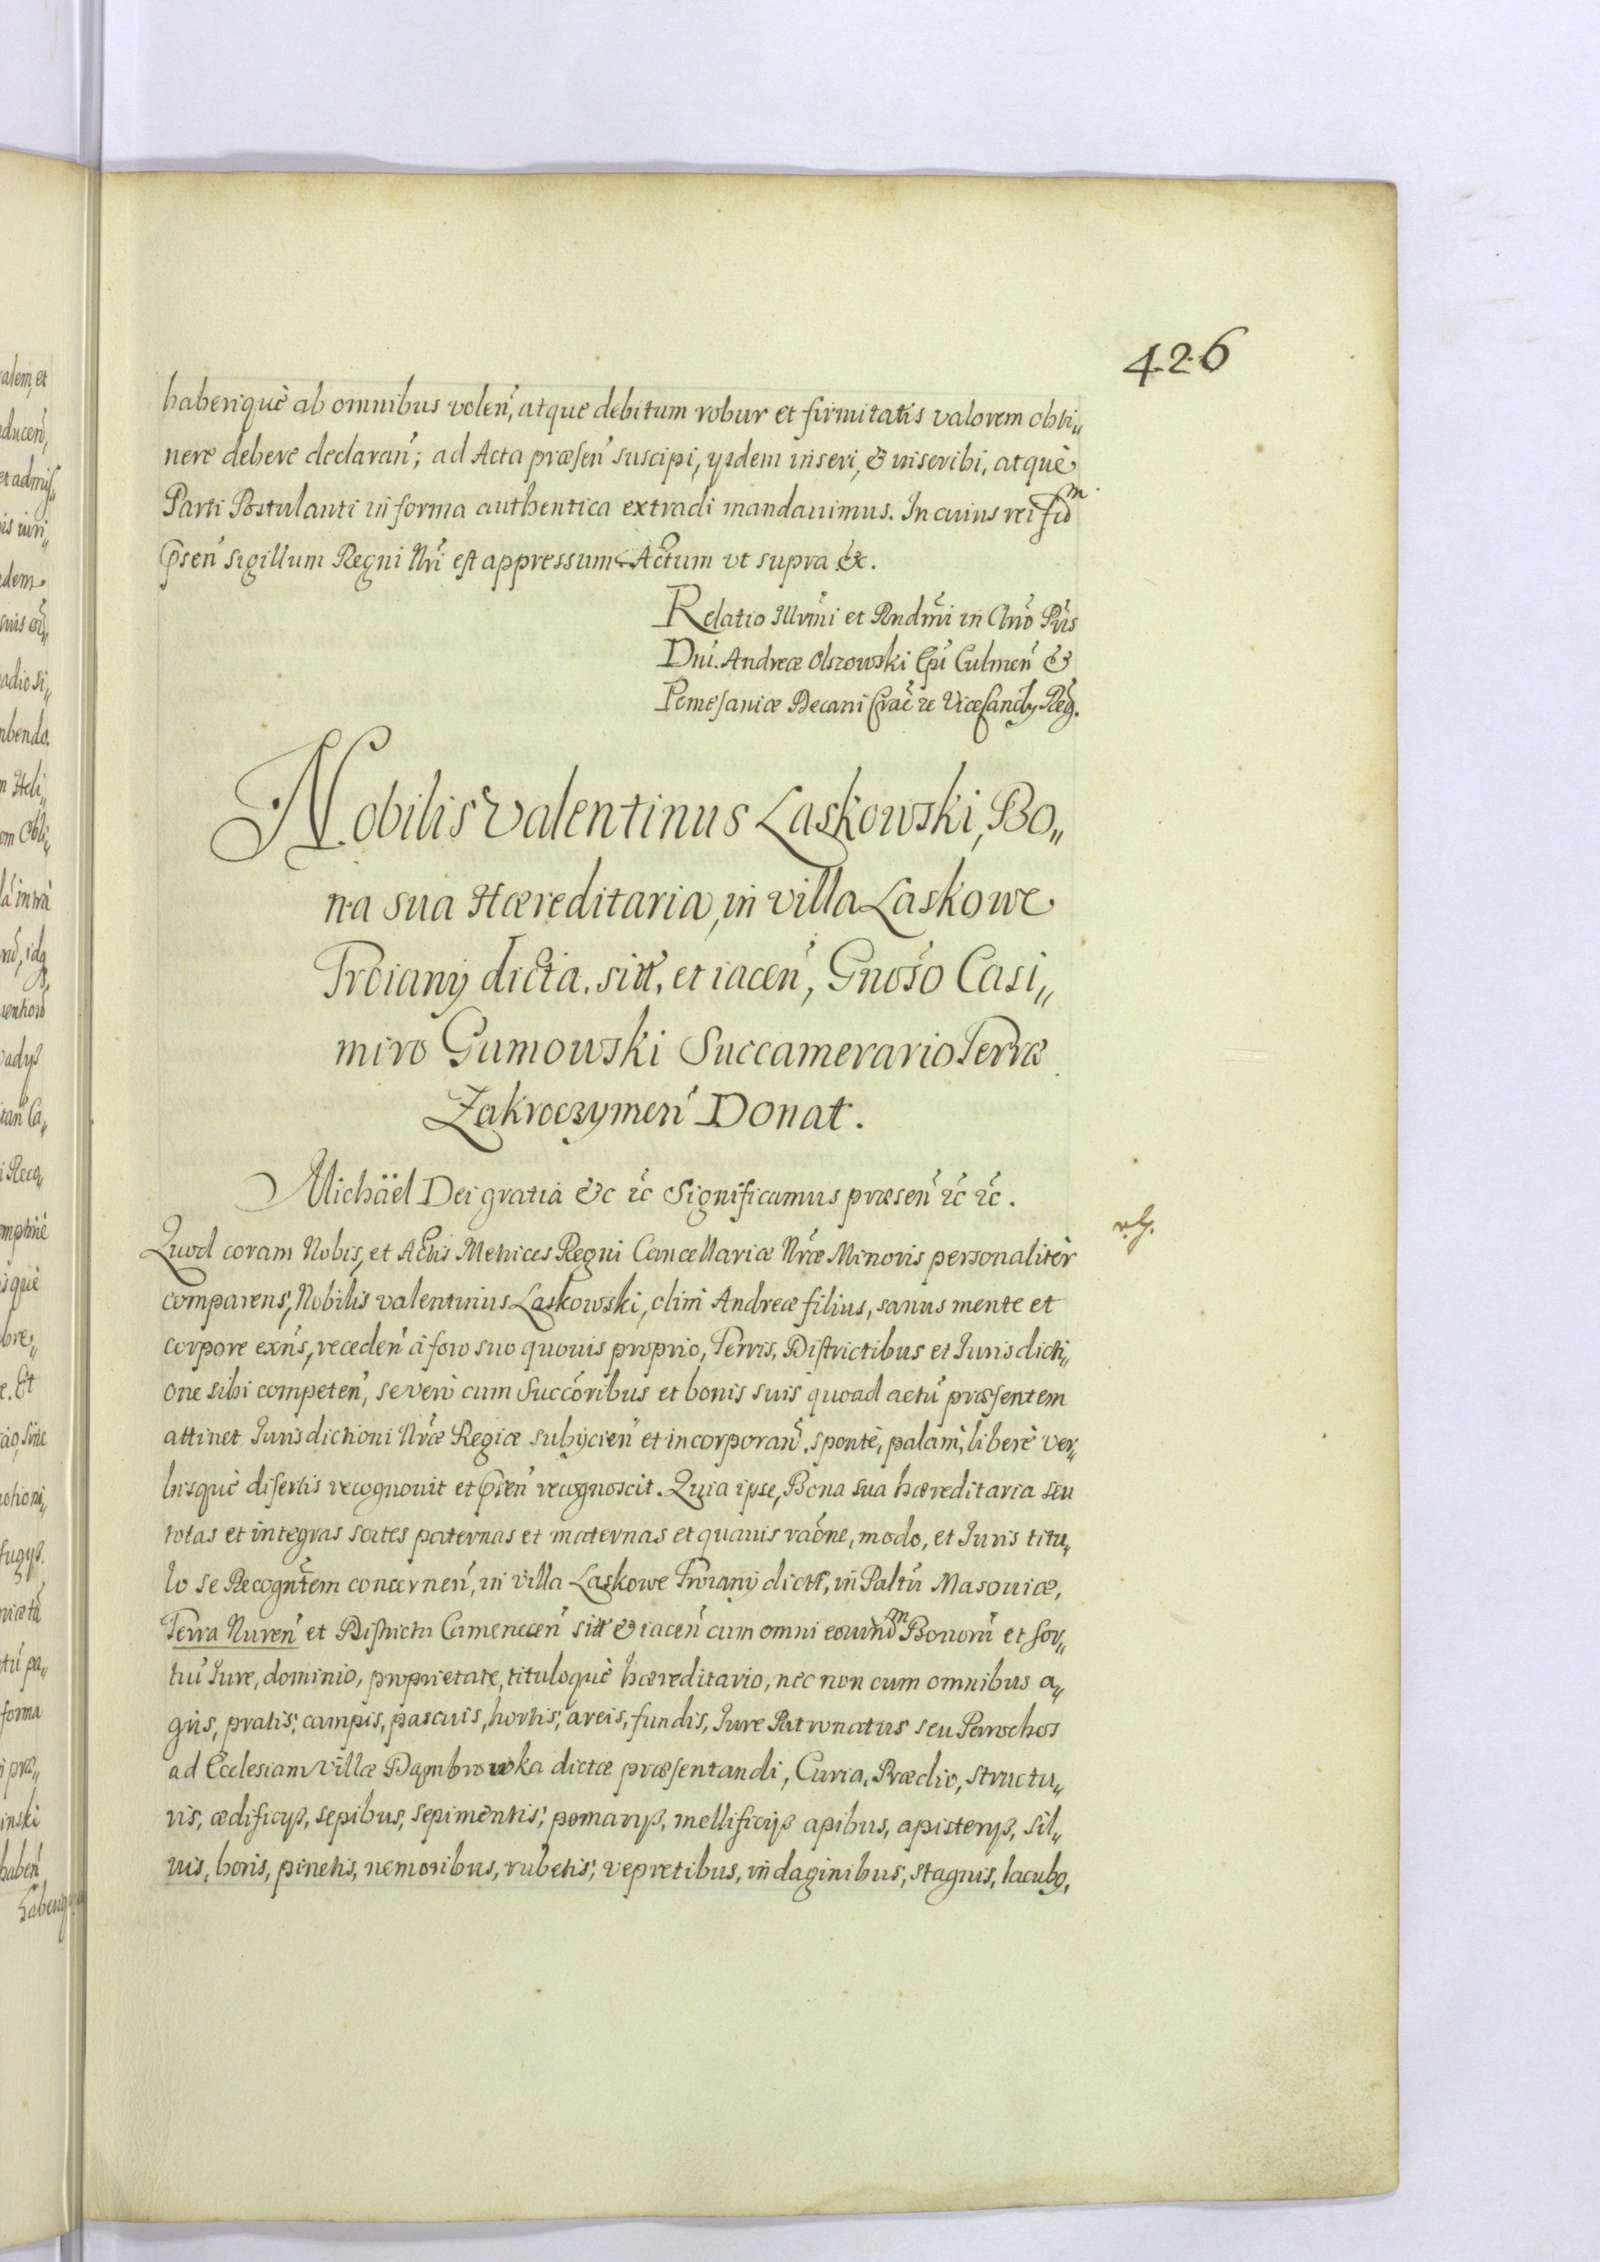 426
haberique ab omnibus volen̄, atque debitum robur et firmitatis valorem obti„
nere debere declaran̄; ad Acta præsen̄ suscipi, ysdem inseri, & inscribi, atquè
Parti Postulanti in forma authentica extradi mandavimus. In cuius rei fid^m
p̄sen̄ sigillum Regni Nr̄i est appressum. Actum ut supra &c.
Relatio Illr̄mi et Rndm̄i in Chr̄o P̄ris
Dn̄i. Andreæ Olszowski Ep̄i Culmen̄ &
Pomesaniæ Decani Crac̄ &c ViceCancy Reg.
Nobilis Valentinus Laskowski, Bo„
na sua Hæreditaria, in villa Laskowe
Troiany dicta. sitt. et iacen̄, Gnoso Casi„
miro Gumowski Succamerario Terræ
Zakroczymen̄ Donat.
Michäel Dei gratia &c &c Significamus præsen̄ &c &c.
Quod coram Nobis, et Actis Metrices Regni Cancellariæ Nr̄æ Minoris personalitèr
comparens, Nobilis Valentinus Laskowski, olim Andreæ filius, sanus mente et
corpore exn̄s, receden̄ à foro suo quovis proprio, Terris, Districtibus et Iurisdicti„
one sibi competen̄, se verò cum Succōribus et bonis suis quoad actū præsentem
attinet Iurisdictioni Nr̄æ Regiæ subijcien̄ et incorporan̄, spontè, palàm, liberè ver„
bisquè disertis recognovit et p̄sen̄ recognoscit. Quia ipse, Bona sua hæreditaria seu
totas et integras sortes paternas et maternas et quavis raōne, modo, et Iuris titu„
lo se Recogn̄tem concernen̄, in villa Laskowe Troiany dictt, in Paltū Masoviæ,
Terra Nuren̄ et Districtu Camenecen̄ sitt & iacen̄ cum omni eorund^m Bonorū et Sor„
tiū Iure, dominio, proprietate, tituloquè hæreditario, nec non cum omnibus a„
gris, pratis, campis, pascuis, hortis, areis, fundis, Iure Patronatus seu Parochos
ad Ecclesiam villæ Dambrowka dictæ præsentandi, Curia, Prædio, structu„
ris, ædificijs, sepibus, sepimentis, pomarijs, mellificijs apibus, apisterijs, sil„
vis, boris, pinetis, nemoribus, rubetis, vepretibus, indaginibus, stagnis, lacub9,